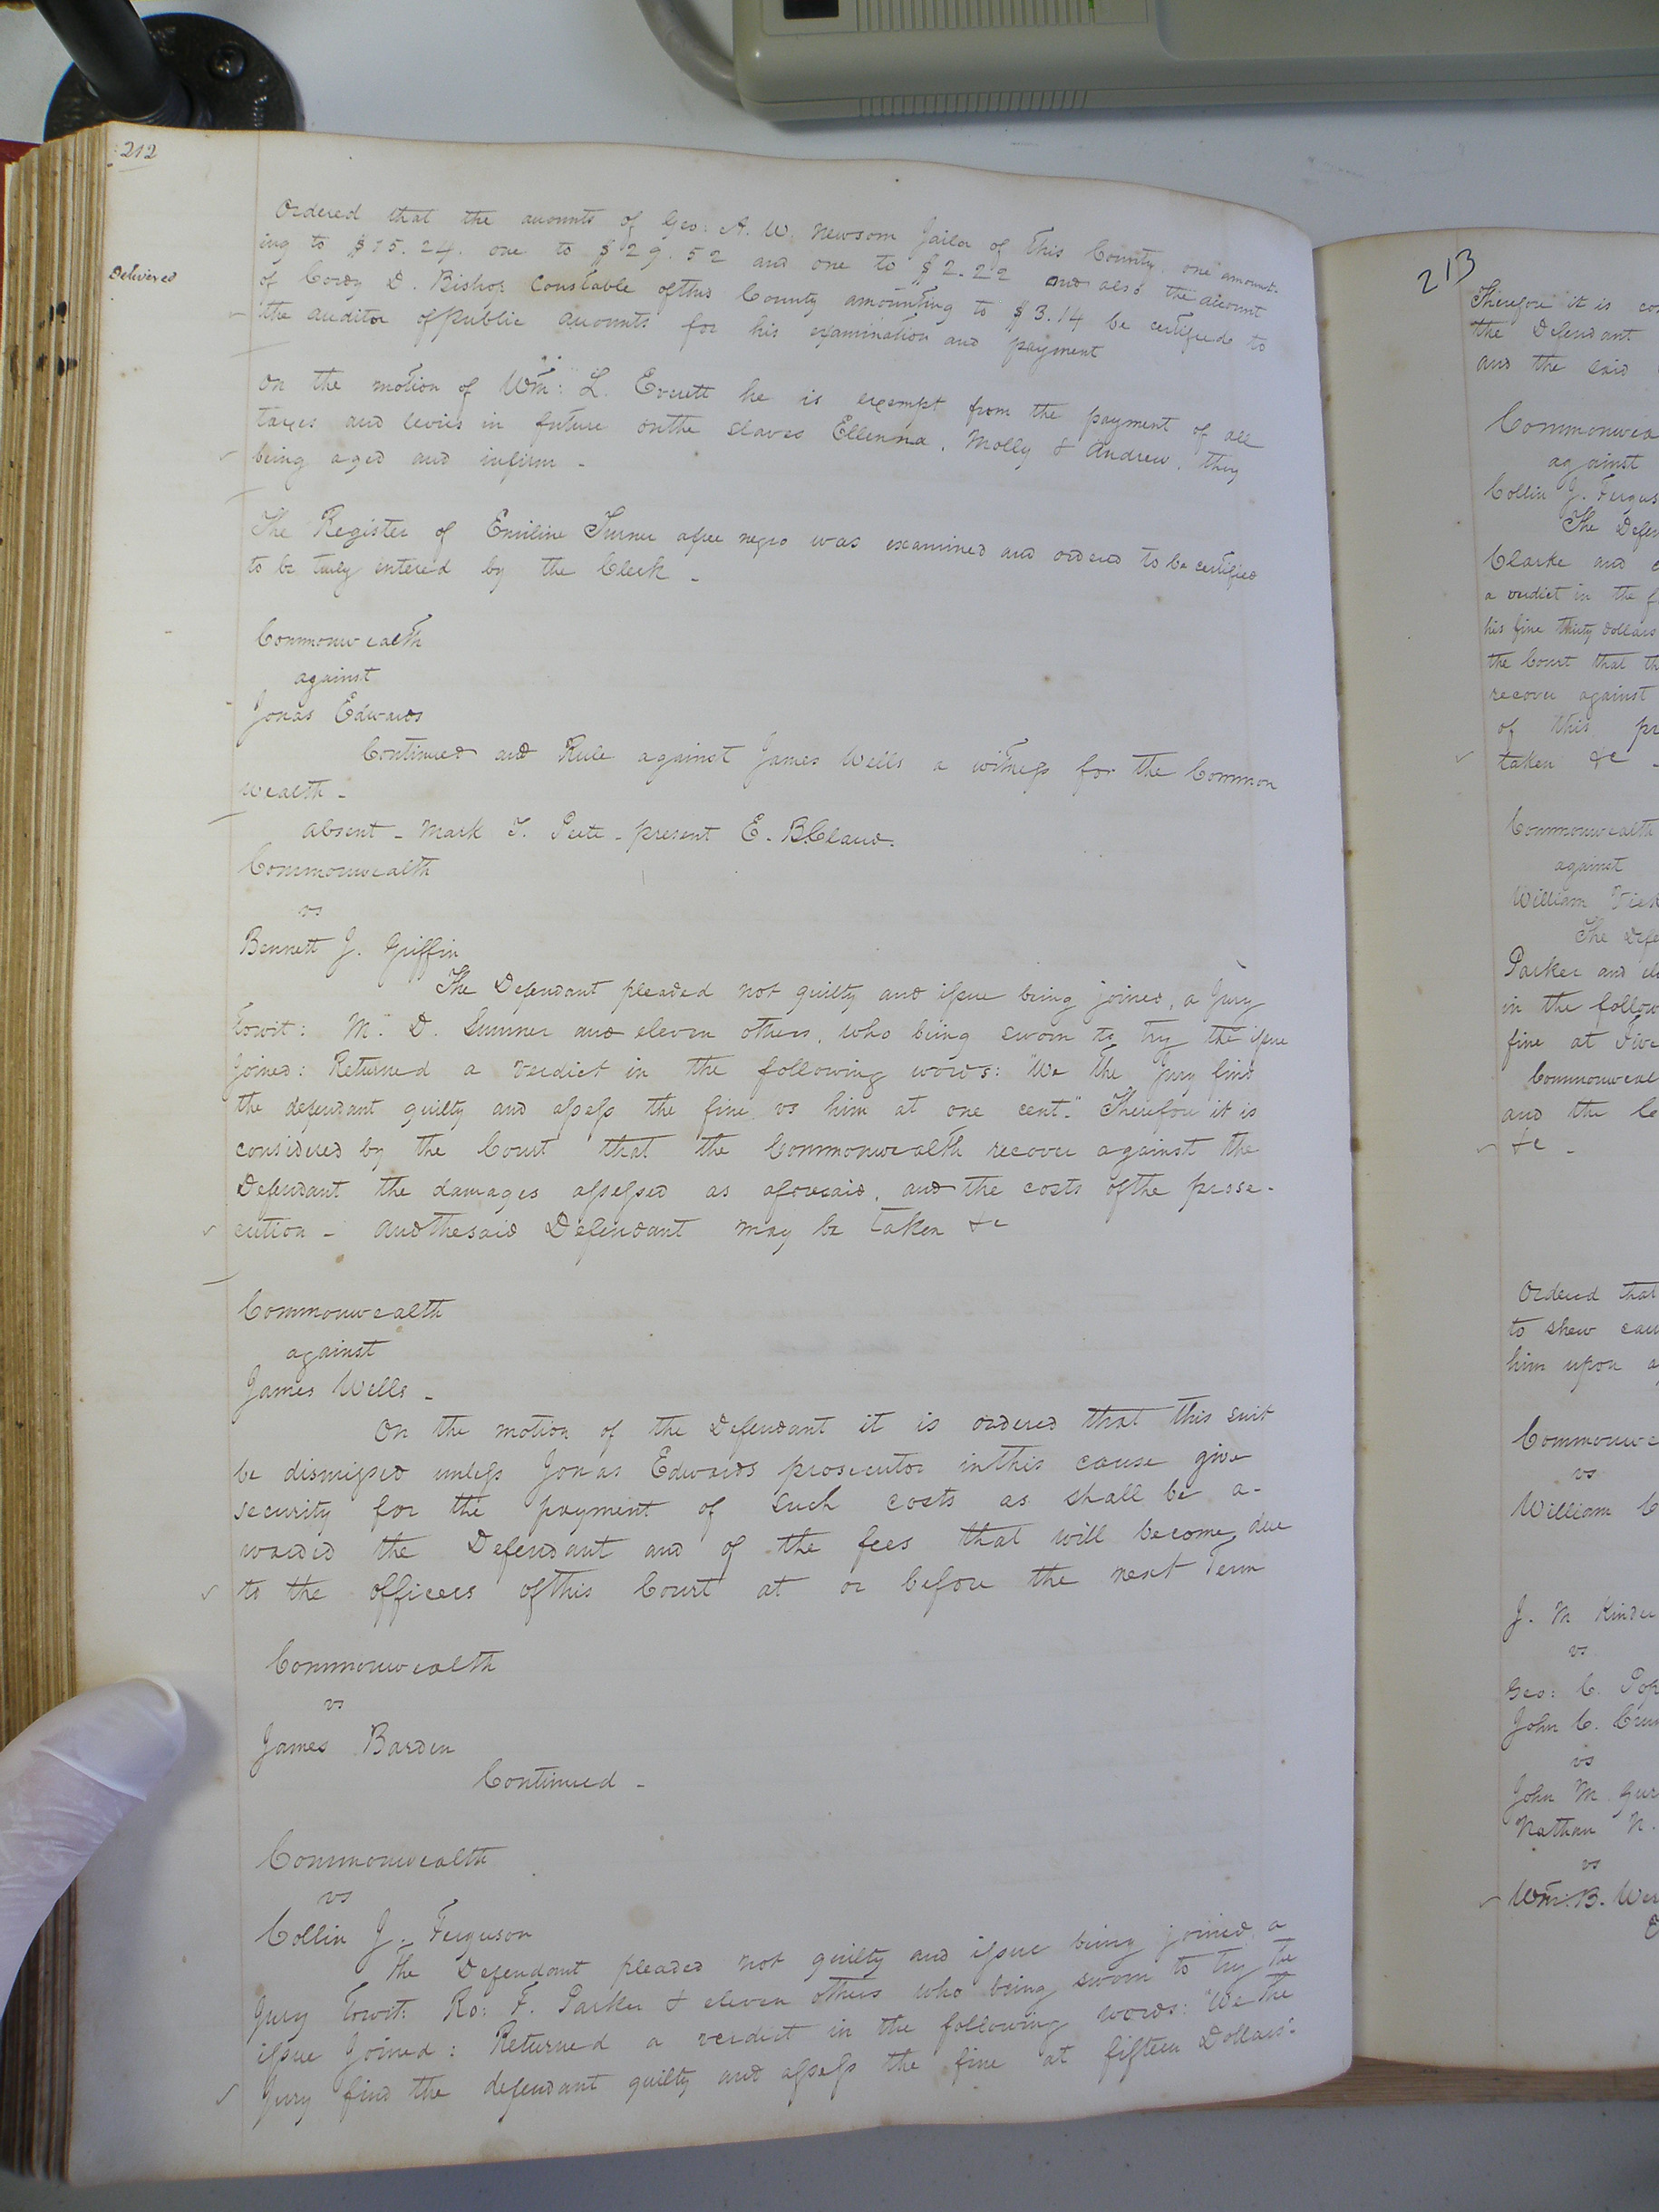 212
Ordered that the accounts of Geo: A. W. Newsom Jailor of this County, one amount-
ing to $15.24. one to $29.52 and one to $2.22 and also the account
Delivered
of Cordy D. Bishop Constable of this County amounting to $3.14 be certified to
the auditor of public accounts for his examination and payment
On the motion of Wm: L. Everett he is exempt from the payment of all
taxes and levies in future on the slaves Ellenna, Molly & Andrew, they
being aged and infirm -
The Register of Emiline Turner a free negro was examined and ordered to be certified
to be truly entered by the Clerk -
Commonwealth
against
Jonas Edwards
Continued and Rule against James Wells a witness for the Common
wealth -
absent - Mark T. Peete - present E. B. Claud.
Commonwealth
vs
Bennett J. Griffin
The Defendant pleaded not guilty and issue being joined, a Jury
Towit: M. D. Sumner and eleven others, who being sworn to try the issue
joined: Returned a verdict in the following words: "We the Jury find
the defendant guilty and assess the fine vs him at one cent." Therefore it is
considered by the Court that the Commonwealth recover against the
Defendant the damages assessed as aforesaid, and the costs of the prose-
cution - and the said Defendant may be taken &c
Commonwealth
against
James Wells -
On the motion of the Defendant it is ordered that this suit
be dismissed unless Jonas Edwards prosecutor in this cause give
security for the payment of such costs as shall be a-
warded the Defendant and of the fees that will become due
to the officers of this Court at or before the next Term
Commonwealth
vs
James Barden
Continued -
Commonwealth
vs
Collin J. Ferguson
The Defendant pleaded not guilty and issue being joined, a
Jury Towit: Ro: F. Parker & eleven others who being sworn to try the
issue joined: Returned a verdict in the following words: "We the
Jury find the defendant guilty and assess the fine at fifteen Dollars".
213
Therefore it is
the Defendant
and the said
against
Collin J.
The
Clarke and
a verdict in the
his fine thirty dollars
the Court that
recover against
of this
taken &c -
Commonwealth
against
William
The
Parker and
in the
fine at
and the
&c -
Ordered that
to shew
him upon
vs
William
J. M
vs
Geo: C.
John C.
vs
John M.
Nathan N.
vs
Wm: B.